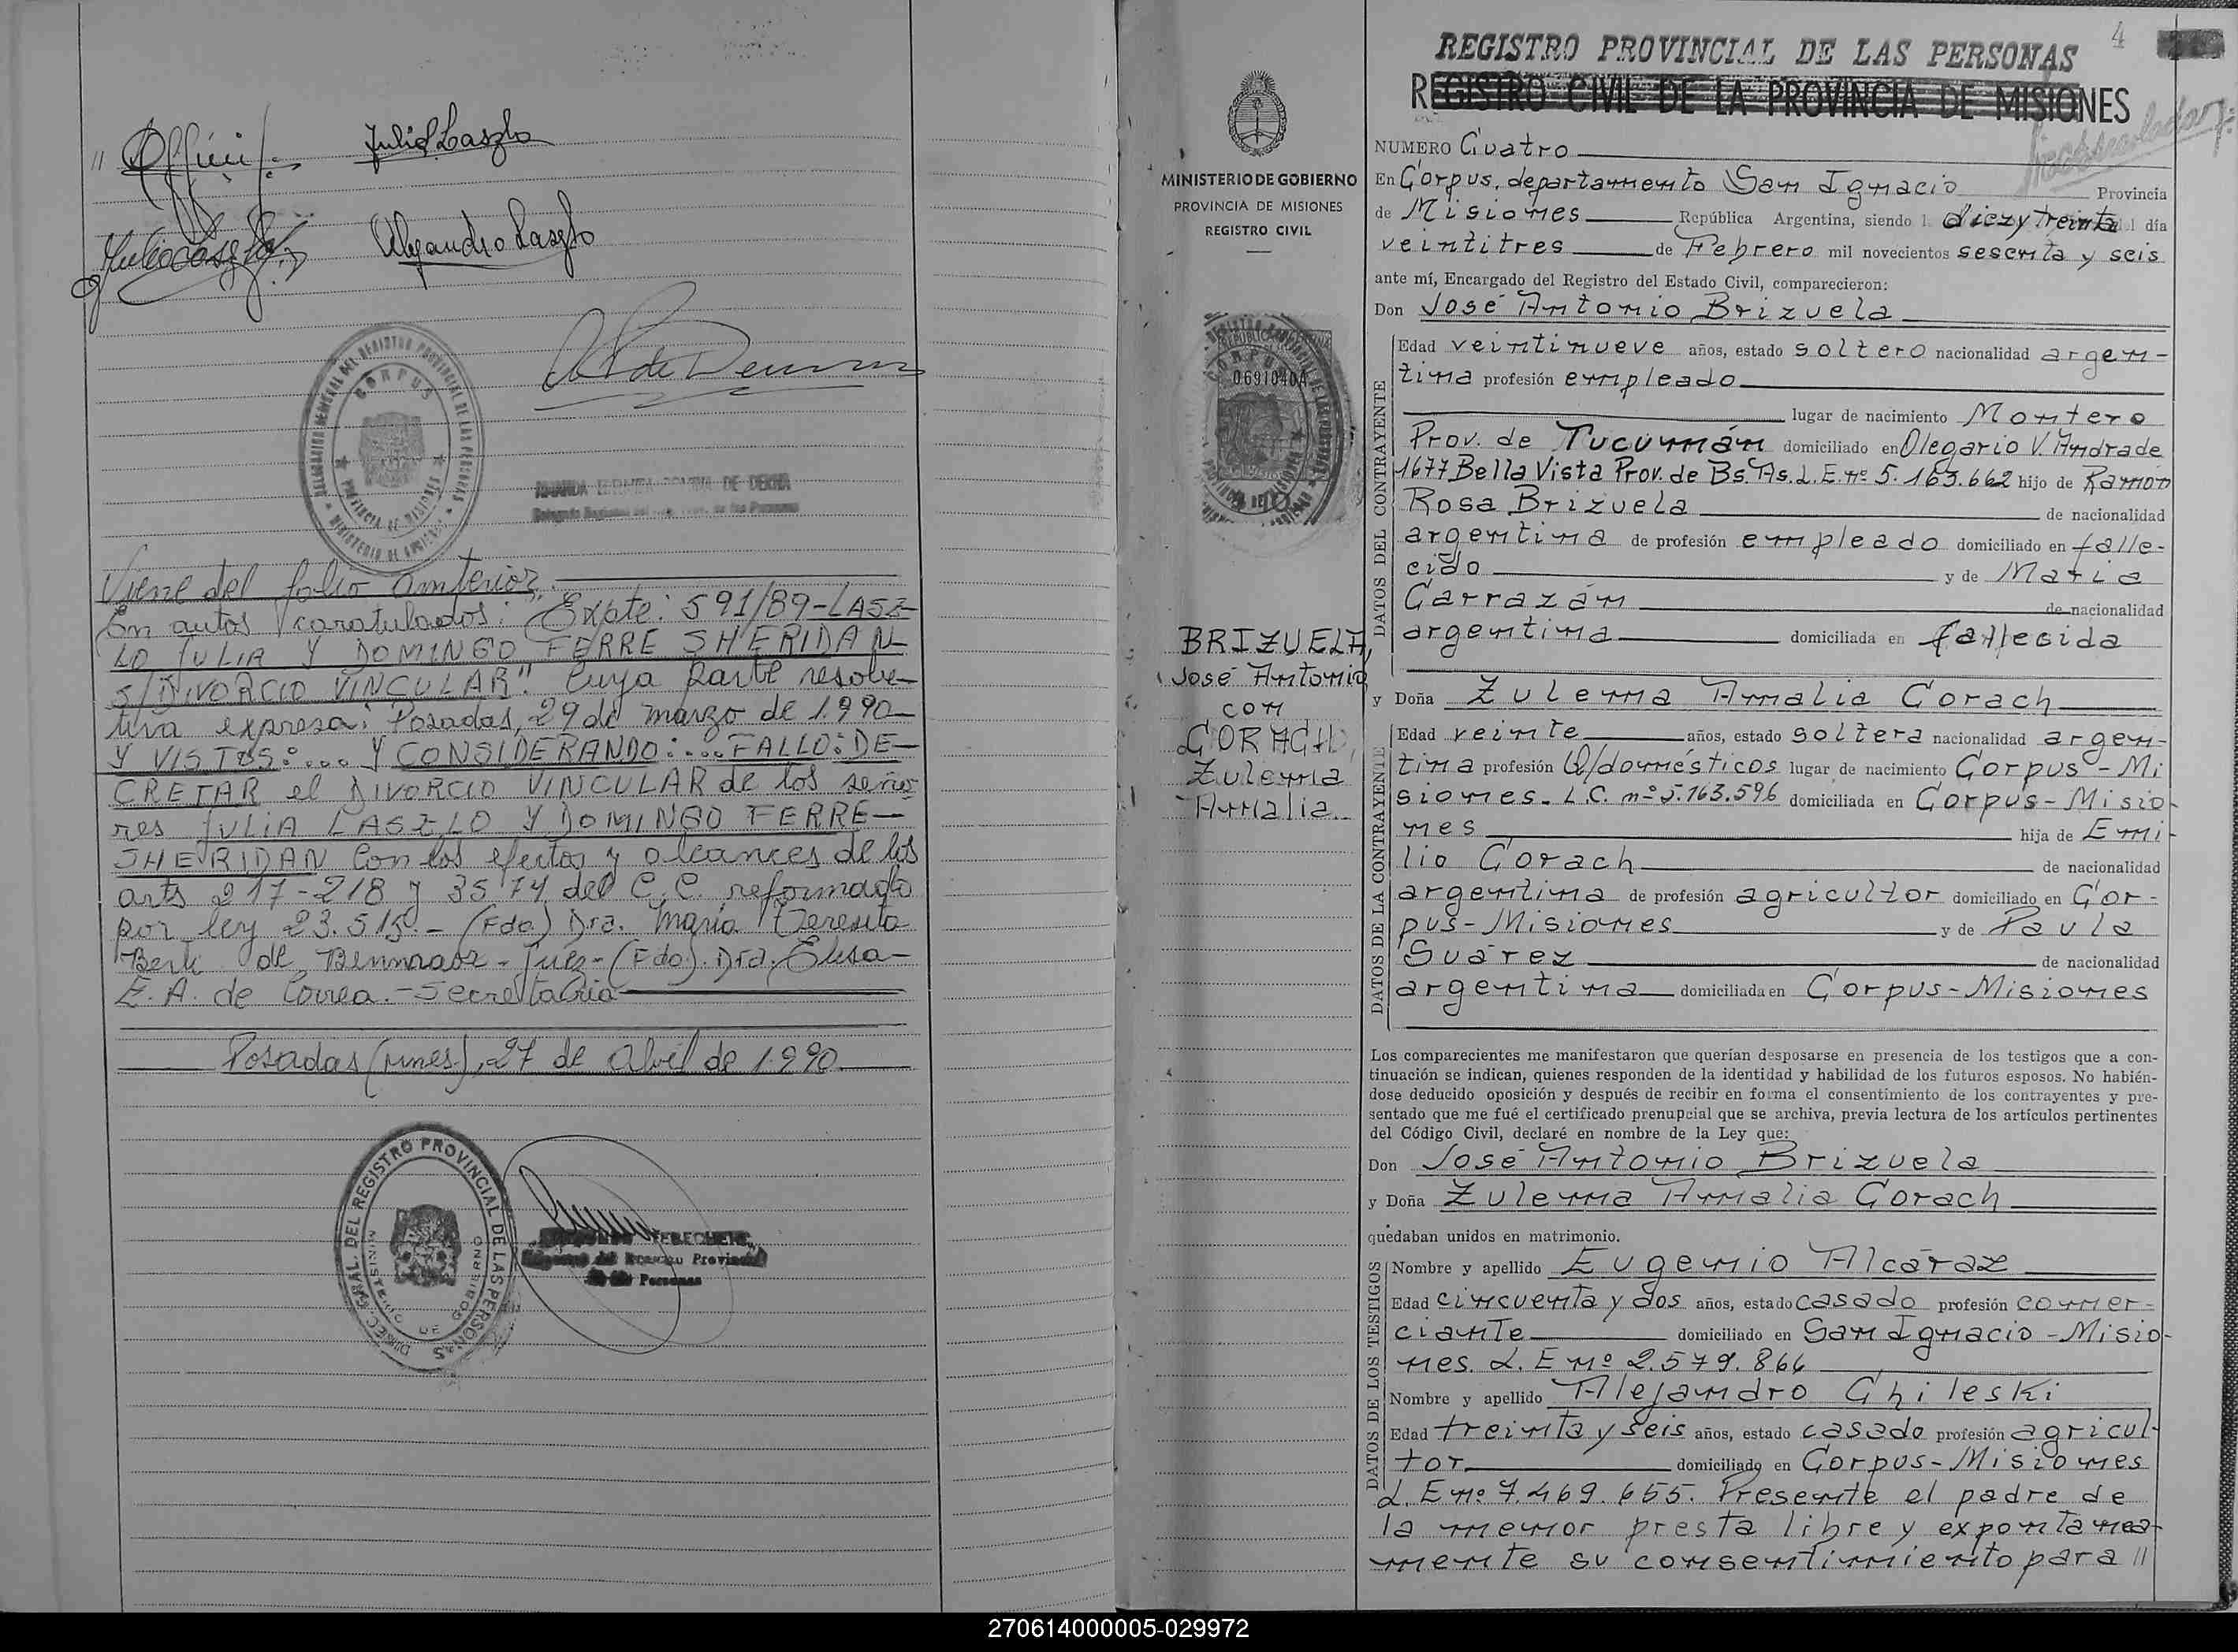 Julio Laszlo
Alejandro Laszlo
DELEGACION GENERAL DEL REGISTRO PROVINCIAL DE LAS PERSONAS
CORPUS
PROVINCIA DE MISIONES
MINISTERIO DE GOBIERNO
DE DERNA
Viene del folio anterior.
En autos caratulados: "Expte: 591/89-LASZ-
LO JULIA Y DOMINGO FERRE SHERIDAN
S/DIVORCIO VINCULAR". Cuya parte resolu-
tiva expresa: Posadas, 29 de marzo de 1.990-
Y VISTOS:... Y CONSIDERANDO:... FALLO: DE-
CRETAR el DIVORCIO VINCULAR de los seño-
res JULIA LASZLO Y DOMINGO FERRE-
SHERIDAN con los efectos y alcances de los
arts 217-218 y 3574 del C.C. reformado
por ley 23.515.- (Fdo) Dra. María Teresita
de - Juez- (Fdo). Dra. Elisa-
Z. A. de Correa.- Secretaria
Posadas (mnes), 27 de abril de 1.990.
DIREC. GRAL. DEL REGISTRO PROVINCIAL DE LAS PERSONAS
MINISTERIO DE GOBIERNO
del Registro Provincial
Personas
MINISTERIO DE GOBIERNO
PROVINCIA DE MISIONES
REGISTRO CIVIL
CORPUS
0691040A
BRIZUELA,
José Antonio
con
CORACH,
Zulema
Amalia.
4
REGISTRO PROVINCIAL DE LAS PERSONAS
REGISTRO CIVIL DE LA PROVINCIA DE MISIONES
NUMERO Cuatro
En Corpus, departamento San Ignacio Provincia
de Misiones República Argentina, siendo l diez y treinta del día
veintitres de Febrero mil novecientos sesenta y seis
ante mí, Encargado del Registro del Estado Civil, comparecieron:
Don José Antonio Brizuela
DATOS DEL CONTRAYENTE
Edad veintinueve años, estado soltero nacionalidad argen-
tina profesión empleado
lugar de nacimiento Montero
Prov. de Tucumán domiciliado en Olegario V. Andrade
1677 Bella Vista Prov. de Bs. As. L.E. nº 5.163.662 hijo de Ramón
Rosa Brizuela de nacionalidad
argentina de profesión empleado domiciliado en falle-
cido y de Maria
Carrazán de nacionalidad
argentina domiciliada en fallecida
y Doña Zulema Amalia Corach
DATOS DE LA CONTRAYENTE
Edad veinte años, estado soltera nacionalidad argen-
tina profesión Q/domésticos lugar de nacimiento Corpus-Mi
siones. L.C. nº 5.163.596 domiciliada en Corpus-Misio-
nes hija de Emi-
lio Corach de nacionalidad
argentina de profesión agricultor domiciliado en Cor-
pus-Misiones y de Paula
Suárez de nacionalidad
argentina domiciliada en Corpus-Misiones
Los comparecientes me manifestaron que querían desposarse en presencia de los testigos que a con-
tinuación se indican, quienes responden de la identidad y habilidad de los futuros esposos. No habién-
dose deducido oposición y después de recibir en forma el consentimiento de los contrayentes y pre-
sentado que me fué el certificado prenupcial que se archiva, previa lectura de los artículos pertinentes
del Código Civil, declaré en nombre de la Ley que:
Don José Antonio Brizuela
y Doña Zulema Amalia Corach
quedaban unidos en matrimonio.
DATOS DE LOS TESTIGOS
Nombre y apellido Eugenio Alcáraz
Edad cincuenta y dos años, estado casado profesión comer-
ciante domiciliado en San Ignacio-Misio-
nes. L.E nº 2.579.866
Nombre y apellido Alejandro Chileski
Edad treinta y seis años, estado casado profesión agricul-
tor domiciliado en Corpus-Misiones
L.E nº 7.469.655. Presente el padre de
la menor presta libre y expontanea-
mente su consentimiento para //
270614000005-029972